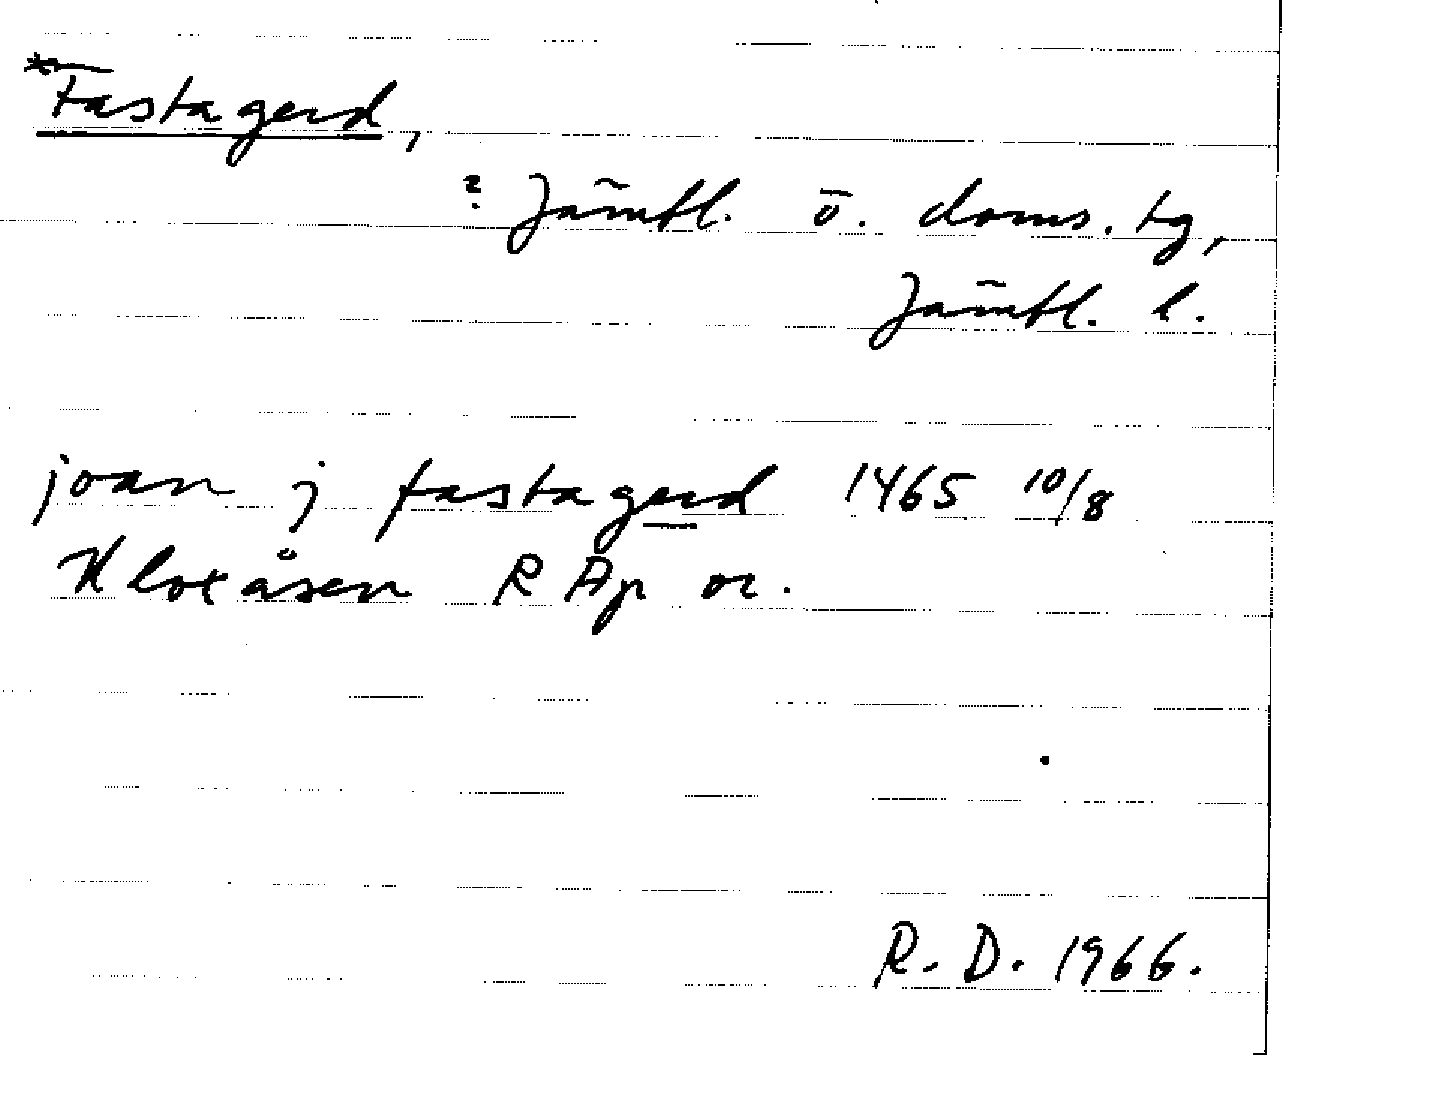 *Fastagerd,
? Jämtl. ö. doms. tg,
Jämtl. l.
joan j fastagerd 1465 10/8
Kloxåsen R Ap or.
R. D. 1966.